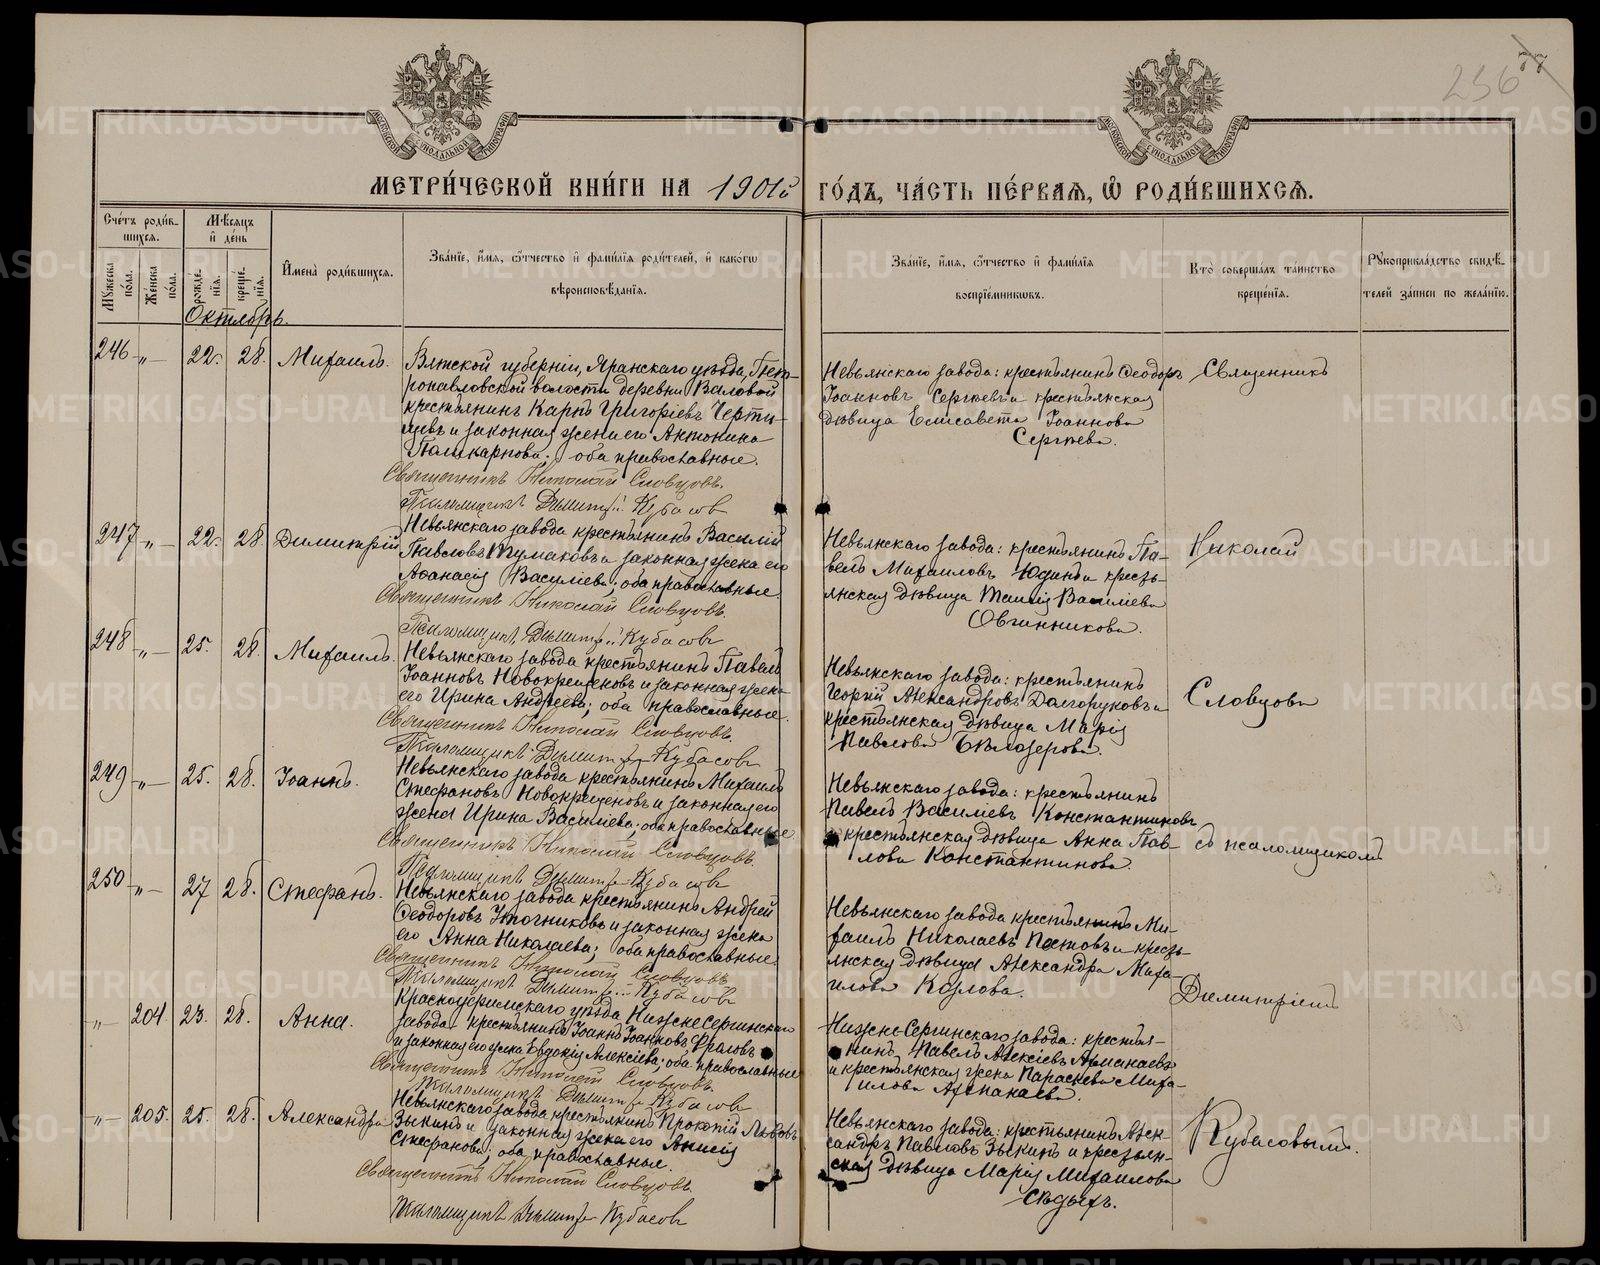 256
77
МОСКОВСКОЙ СѴНОДАЛЬНОЙ ТИПОГРАФІИ
МОСКОВСКОЙ СѴНОДАЛЬНОЙ ТИПОГРАФІИ
МЕТРИ́ЧЕСКОЙ КНИ́ГИ НА 1901й ГО́ДЪ, ЧА́СТЬ ПЕ́РВАѦ, Ѡ РОДИ́ВШИХСѦ.
Сче́тъ роди́в-
шихсѧ.
Мѣ́сѧцъ
и҆ де́нь
Мꙋ́жеска по́ла.
Же́нска по́ла.
рожде́-
нїѧ.
креще́-
нїѧ.
И҆мена̀ роди́вшихсѧ.
Зва́нїе, и҆́мѧ, ѻ҆́тчество и҆ фами́лїѧ роди́телей, и҆ како́гѡ
вѣроисповѣ́данїѧ.
Зва́нїе, и҆́мѧ, ѻ҆́тчество и҆ фами́лїѧ
воспрїе́мникѡвъ.
Кто̀ соверша́лъ та́инство
креще́нїѧ.
Рꙋкоприкла́дство свидѣ́-
телей за́писи по жела́нїю.
Октябрь.
246 -„- 22. 28. Михаилъ.
Вятской губерніи, Яранскаго уѣзда, Пет-
ропавловской волости деревни Валовой
крестьянинъ Карпъ Григоріевъ Черты-
щевъ и законная жена его Антонина
Поликарпова; оба православные.
Священникъ Николай Словцовъ.
Псаломщикъ Димитрій Кубасовъ
Невьянскаго завода: крестьянинъ Ѳеодоръ
Іоанновъ Сергѣевъ и крестьянская
дѣвица Елисавета Іоаннова
Сергѣева.
Священникъ
247 -„- 22. 28 Димитрій
Невьянскаго завода крестьянинъ Василій
Павловъ Тумаковъ и законная жена его
Аѳанасія Василіева; оба православные.
Священникъ Николай Словцовъ.
Псаломщикъ Димитрій Кубасовъ
Невьянскаго завода: крестьянинъ Па-
велъ Михаиловъ Юдинъ и кресть-
янская дѣвица Таисія Василіева
Овчинникова.
Николай
248 -„- 25. 28. Михаилъ.
Невьянскаго завода крестьянинъ Павелъ
Іоанновъ Новокрещеновъ и законная жена
его Ирина Андреева; оба православные.
Священникъ Николай Словцовъ.
Псаломщикъ Димитрій Кубасовъ
Невьянскаго завода: крестьянинъ
Георгій Александровъ Долгоруковъ и
крестьянская дѣвица Марія
Павлова Бѣлозерова.
Словцовъ
249 -„- 25. 28. Іоаннъ.
Невьянскаго завода крестьянинъ Михаилъ
Стефановъ Новокрещеновъ и законная его
жена Ирина Василіева; оба православные
Священникъ Николай Словцовъ.
Псаломщикъ Димитрій Кубасовъ
Невьянскаго завода: крестьянинъ
Павелъ Василіевъ Константиновъ
и крестьянская дѣвица Анна Пав-
лова Константинова.
съ псаломщикомъ
250 -„- 27 28. Стефанъ.
Невьянскаго завода крестьянинъ Андрей
Ѳеодоровъ Уточниковъ и законная жена
его Анна Николаева; оба православные.
Священникъ Николай Словцовъ
Псаломщикъ Димитрій Кубасовъ
Невьянскаго завода крестьянинъ Ми-
хаилъ Николаевъ Постовъ и кресть-
янская дѣвица Александра Миха-
илова Козлова.
Димитріемъ
-„- 204 23. 28. Анна.
Красноуфимскаго уѣзда Нижне Сергинскаго
завода крестьянинъ Іоаннъ Іоанновъ Фроловъ
и законная его жена Евдокія Алексіева; оба православные
Священникъ Николай Словцовъ.
Псаломщикъ Димитрій Кубасовъ
Нижне Сергинскаго завода: крестья-
нинъ Павелъ Алексіевъ Аѳманаевъ
и крестьянская жена Параскева Миха-
илова
-„- 205. 25. 28. Александра
Невьянскаго завода крестьянинъ Прокопій Львовъ
Зыкинъ и законная жена его Анисія
Стефанова; оба православные.
Священникъ Николай Словцовъ.
Псаломщикъ Димитрій Кубасовъ
Невьянскаго завода: крестьянинъ Алек-
сандръ Павловъ Зыкинъ и крестьян-
ская дѣвица Марія Михаилова
Сѣдыхъ.
Кубасовымъ.
METRIKI.GASO-URAL.RU